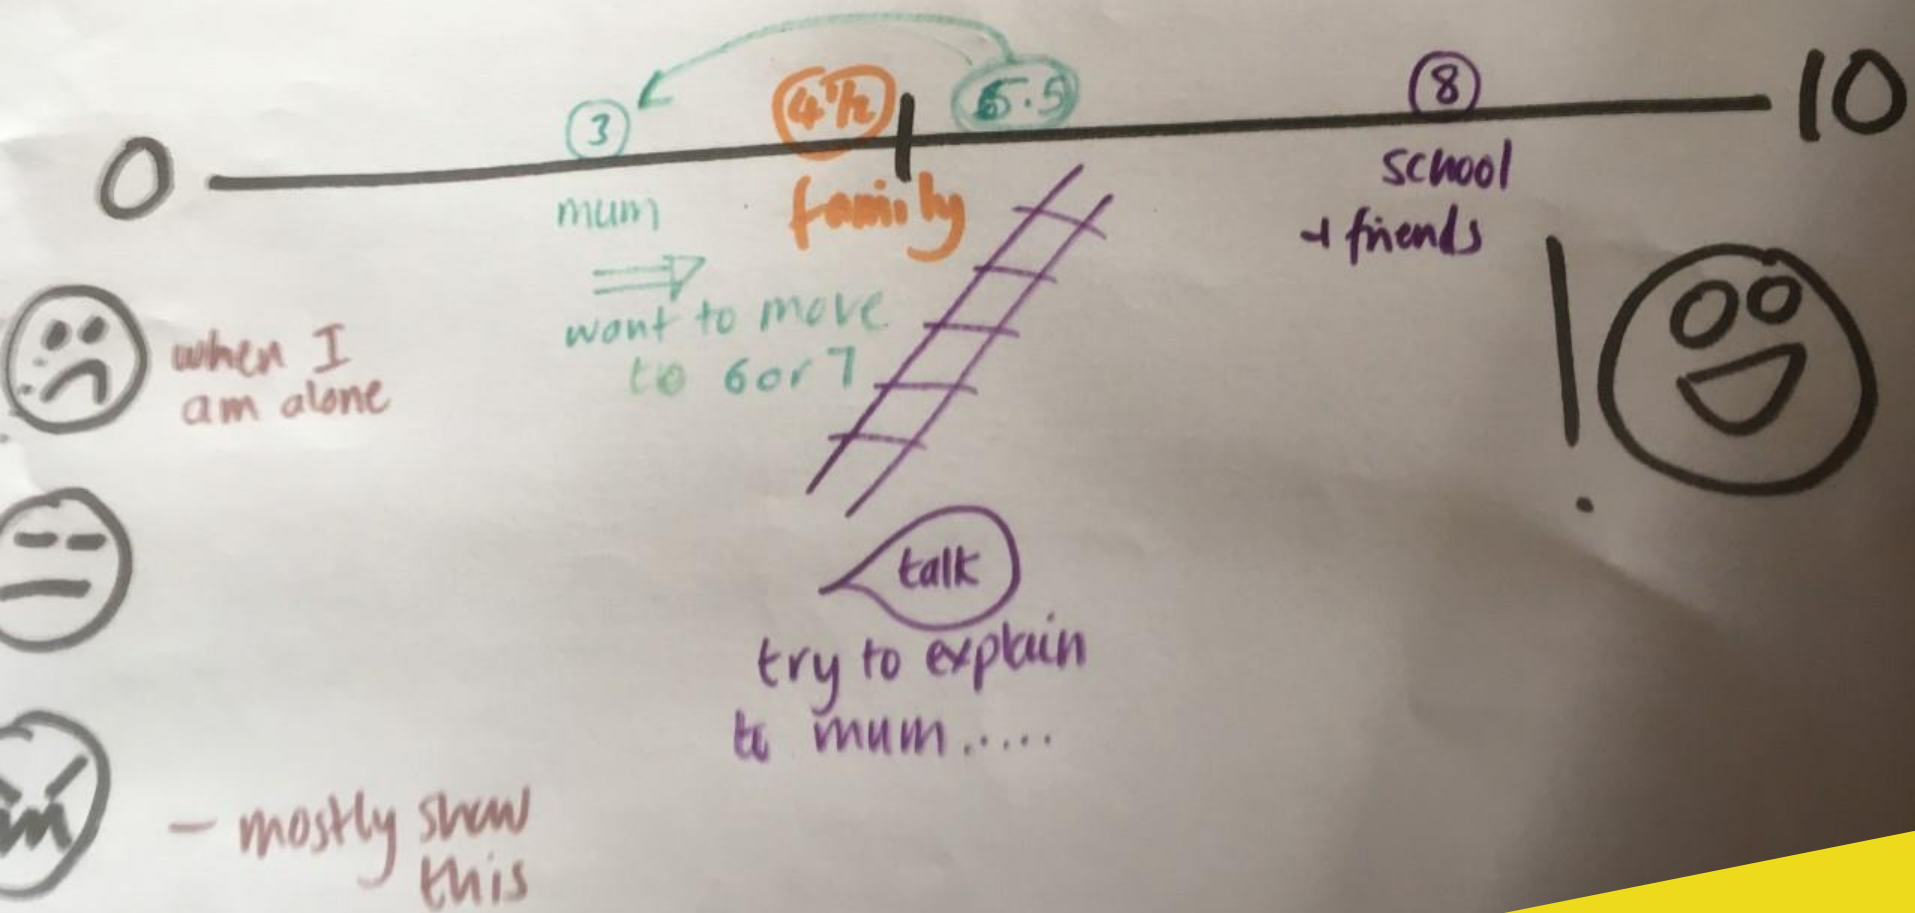 0
3
4½
5.5
8
10
mum
family
school
+ friends
want to move
to 6 or 7
when I
am alone
talk
try to explain
to mum.....
- mostly show
this